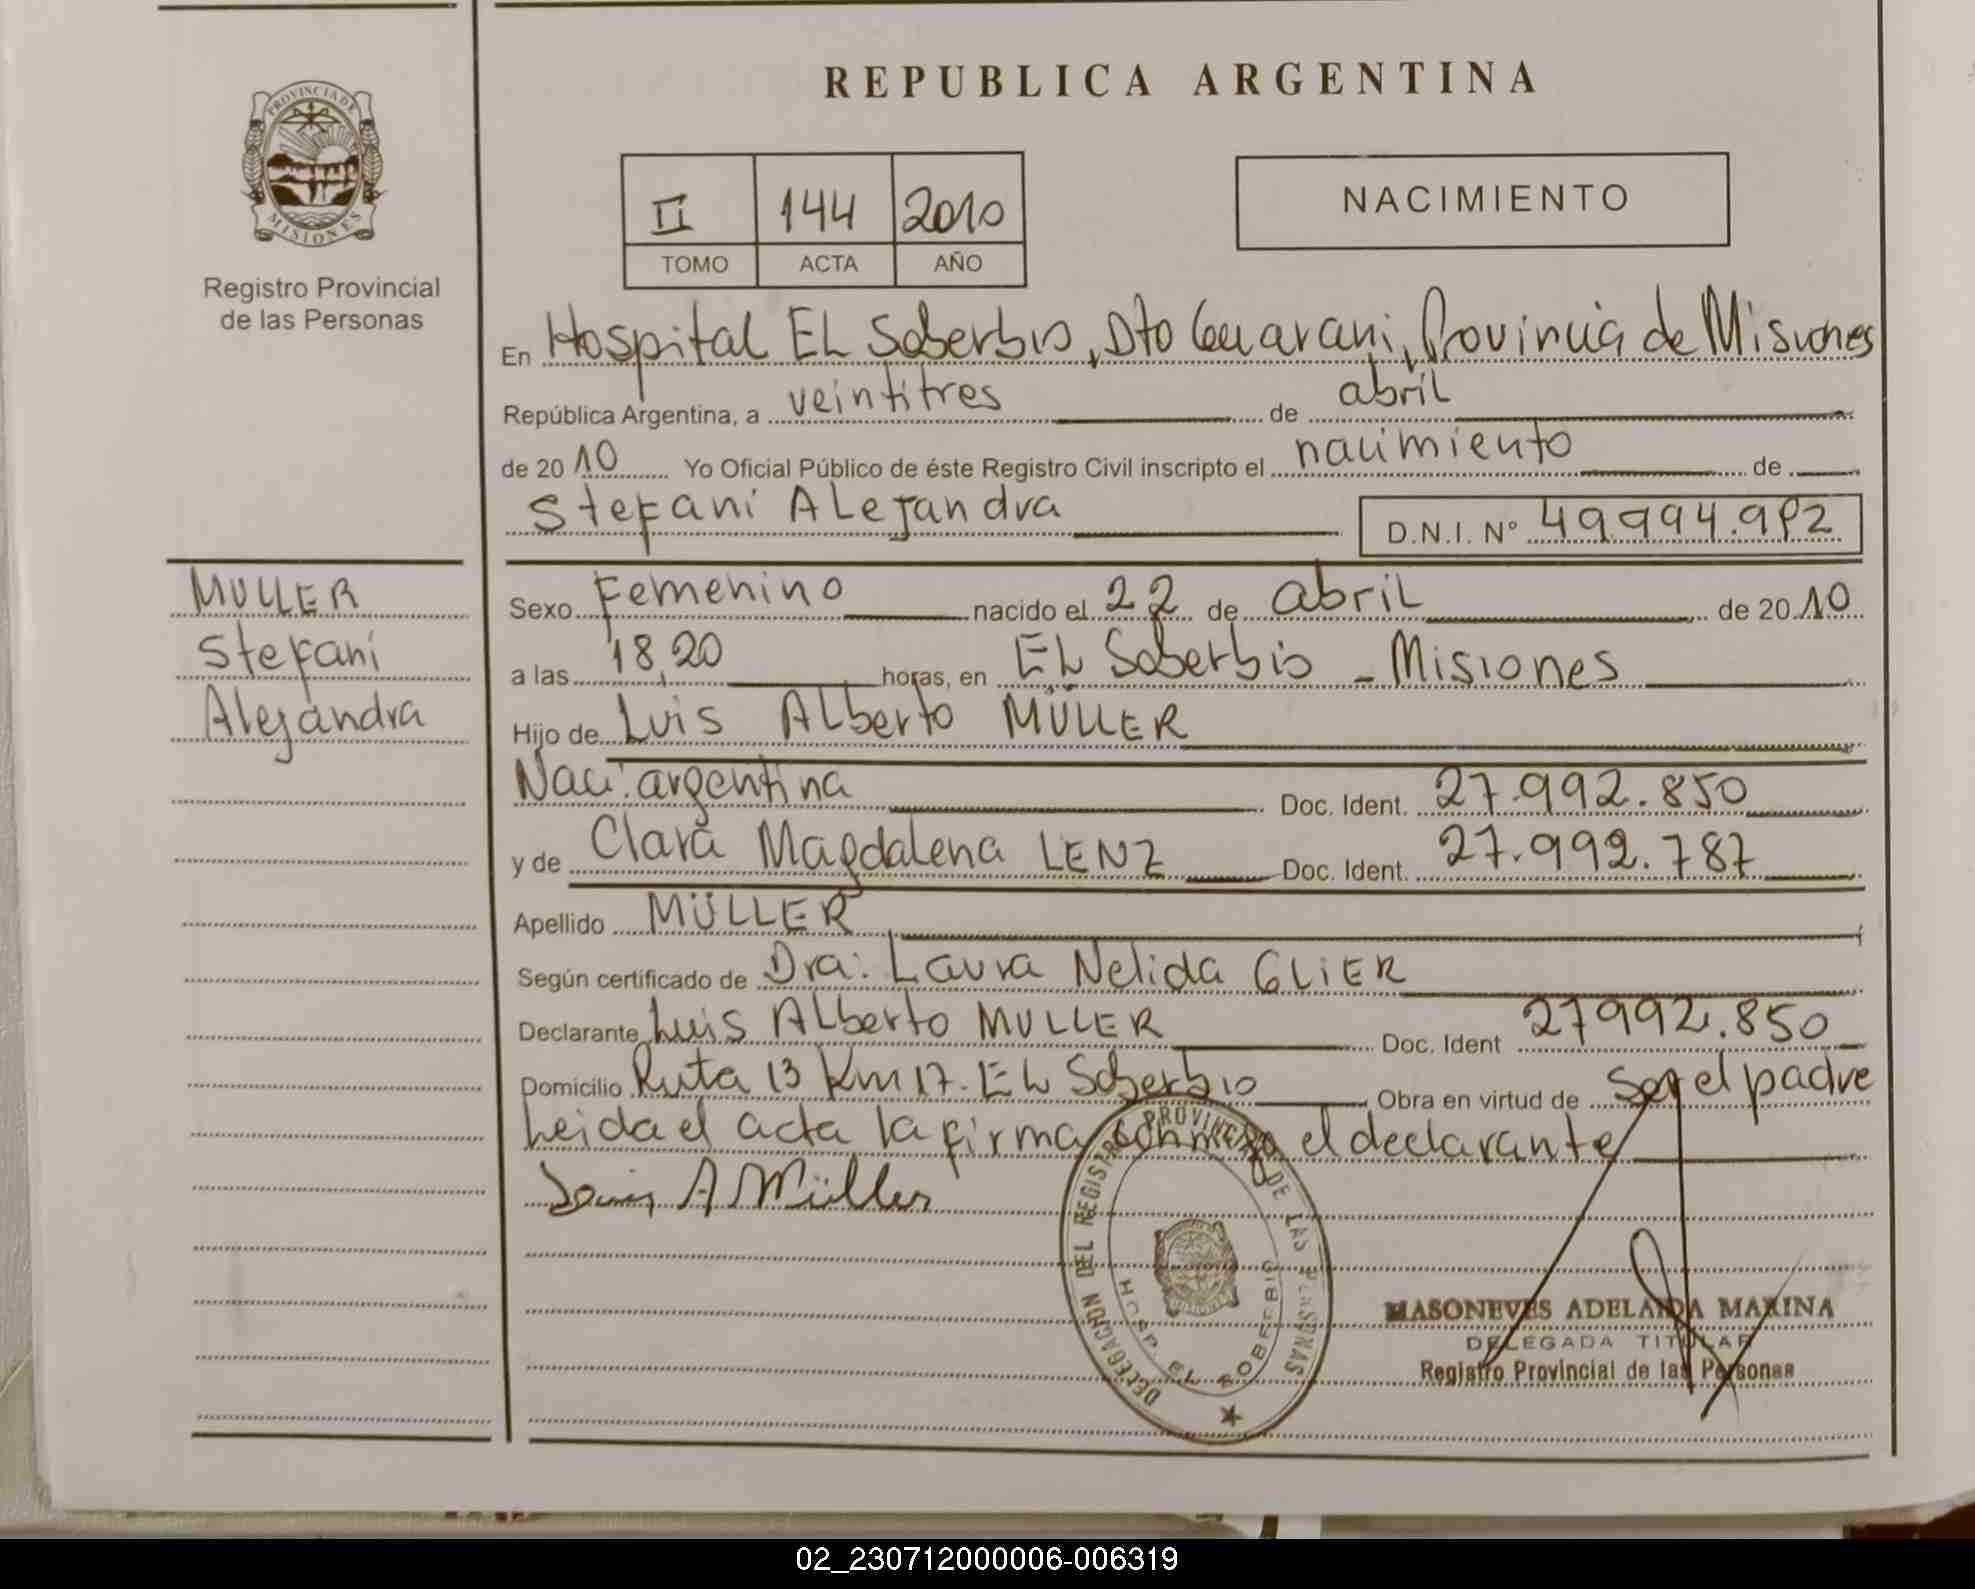 REPUBLICA ARGENTINA
PROVINCIA DE MISIONES
Registro Provincial
de las Personas
II 144 2010
TOMO ACTA AÑO
NACIMIENTO
En Hospital EL Soberbio, Dto Guarani, Provincia de Misiones
República Argentina, a veintitres de abril
de 2010 Yo Oficial Público de éste Registro Civil inscripto el nacimiento de
Stefani Alejandra D.N.I. Nº 49.994.982
MULLER
Stefani
Alejandra
Sexo Femenino nacido el 22 de abril de 2010
a las 18,20 horas, en EL Soberbio - Misiones
Hijo de Luis Alberto MÜLLER
Naci: argentina Doc. Ident. 27.992.850
y de Clara Magdalena LENZ Doc. Ident. 27.992.787
Apellido MÜLLER
Según certificado de Dra: Laura Nelida GLIER
Declarante Luis Alberto MULLER Doc. Ident 27992.850
Domicilio Ruta 13 Km 17. EL Soberbio Obra en virtud de Ser el padre
Leida el acta la firma conmigo el declarante
Luis A Müller
DELEGACION DEL REGISTRO PROVINCIAL DE LAS PERSONAS
HOSP. EL SOBERBIO
MASONEVES ADELAIDA MARINA
DELEGADA TITULAR
Registro Provincial de las Personas
02_230712000006-006319